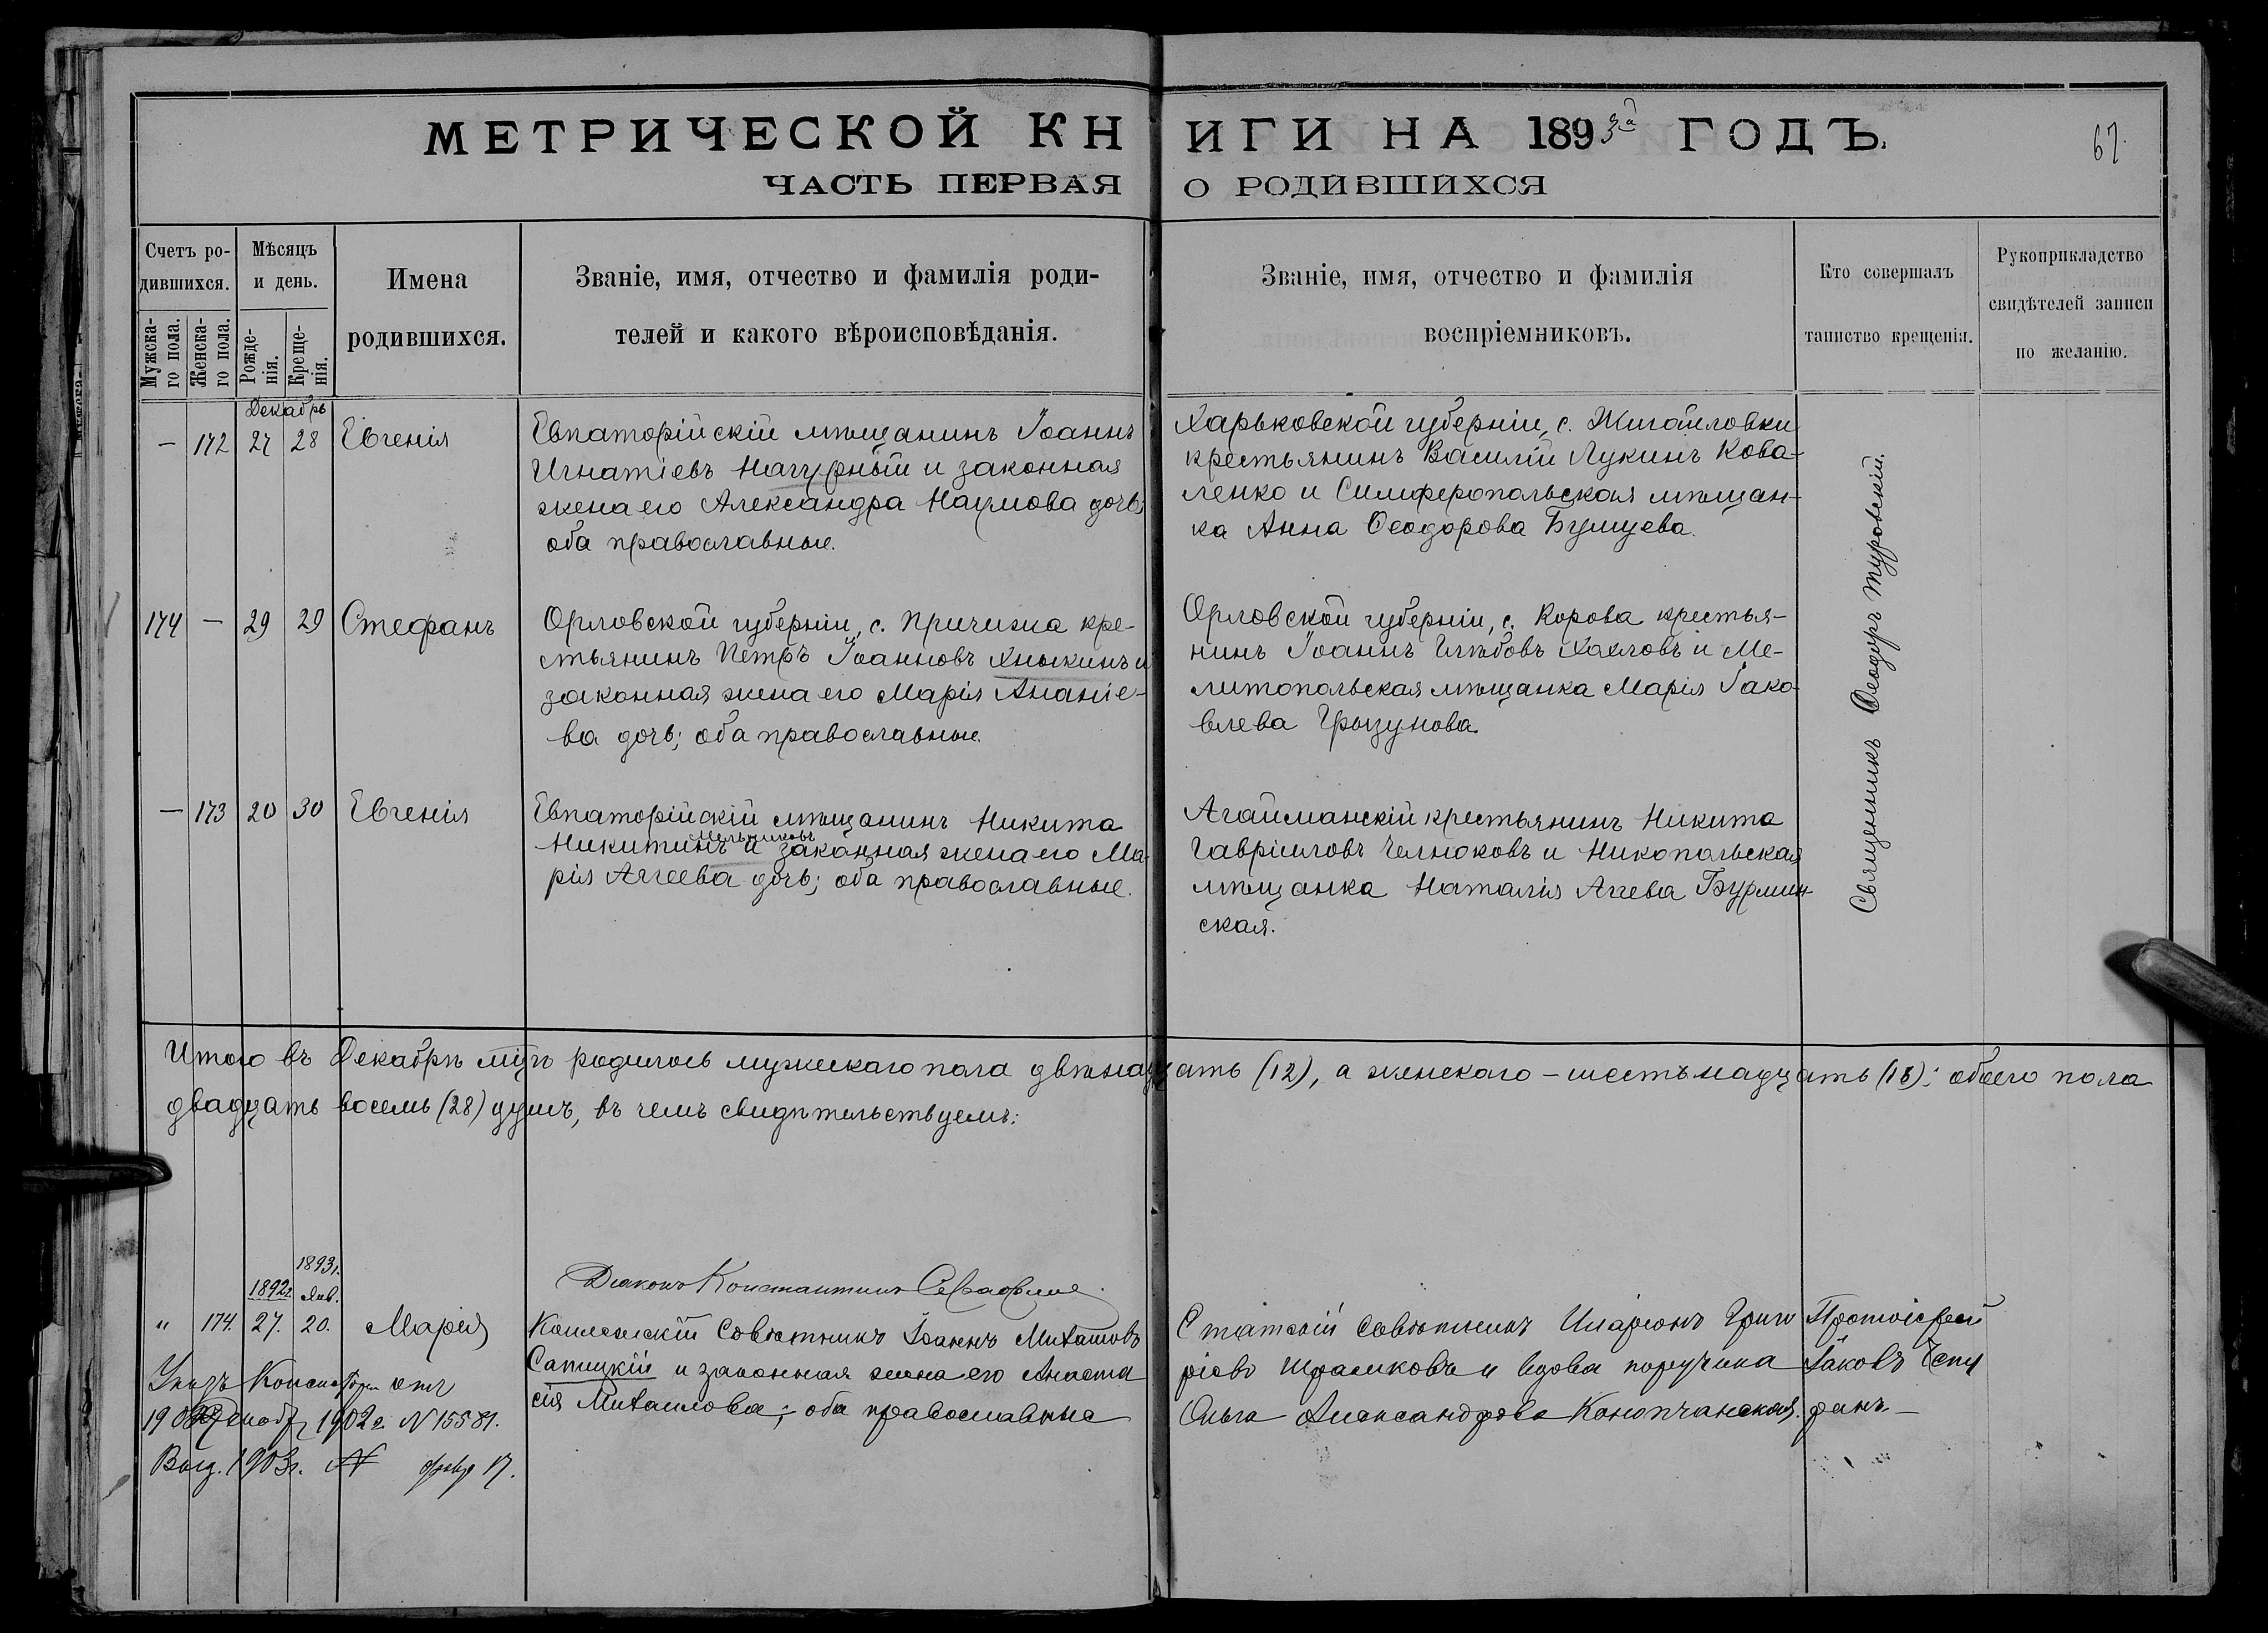 МЕТРИЧЕСКОЙ КНИГИ НА 1893й ГОДЪ.
67.
ЧАСТЬ ПЕРВАЯ О РОДИВШИХСЯ
Счетъ ро-
дившихся.
Мужска-
го пола.
Женска-
го пола.
Мѣсяцъ
и день.
Рожде-
нія.
Креще-
нія.
Имена
родившихся.
Званіе, имя, отчество и фамилія роди-
телей и какого вѣроисповѣданія.
Званіе, имя, отчество и фамилія
воспріемниковъ.
Кто совершалъ
таинство крещенія.
Рукоприкладство
свидѣтелей записи
по желанію.
Декабрь
— 172 27 28 Евгенія
Евпаторійскій мѣщанинъ Іоаннъ
Игнатіевъ Нагурный и законная
жена его Александра Наумова дочь;
оба православные.
Харьковской губерніи, с. Жигайловки
крестьянинъ Василій Лукинъ Кова-
ленко и Симферопольская мѣщан-
ка Анна Ѳеодорова Бущуева.
174 — 29 29 Стефанъ
Орловской губерніи, с. Причижа кре-
стьянинъ Петръ Іоанновъ Хныкинъ и
законная жена его Марія Ананіе-
ва дочь; оба православные.
Орловской губерніи, с. Корова крестья-
нинъ Іоаннъ Глѣбовъ Хахловъ и Ме-
литопольская мѣщанка Марія Іако-
влева Грызунова.
— 173 20 30 Евгенія
Евпаторійскій мѣщанинъ Никита
Мельниковъ
Никитинъ и законная жена его Ма-
рія Аггеева дочь; оба православные.
Агайманскій крестьянинъ Никита
Гавріиловъ Челноковъ и Никопольская
мѣщанка Наталія Агеева Бурмин-
ская.
Священникъ Ѳеодоръ Туровскій.
Итого въ Декабрѣ мцѣ родилось мужескаго пола двѣнадцать (12), а женскаго – шестьнадцать (16); обоего пола
двадцать восемь (28) душъ, въ чемъ свидѣтельствуемъ:
Діаконъ Константинъ
1892г. 1893г.
Янв.
" 174. 27. 20. Марія
Коллежскій Совѣтникъ Іоаннъ Михайловъ
Сапицкій и законная жена его Анаста
сія Михаилова; оба православные
Статскій Совѣтникъ Иларіонъ Григо
ріевъ Шрамковъ и вдова поручика
Ольга Александрова Конопчанская.
Протоіерей
Іаковъ Чепу
ринъ. —
Указъ Консисторіи отъ
1902 г. № 15581.
Выд. 1903г. № 17.